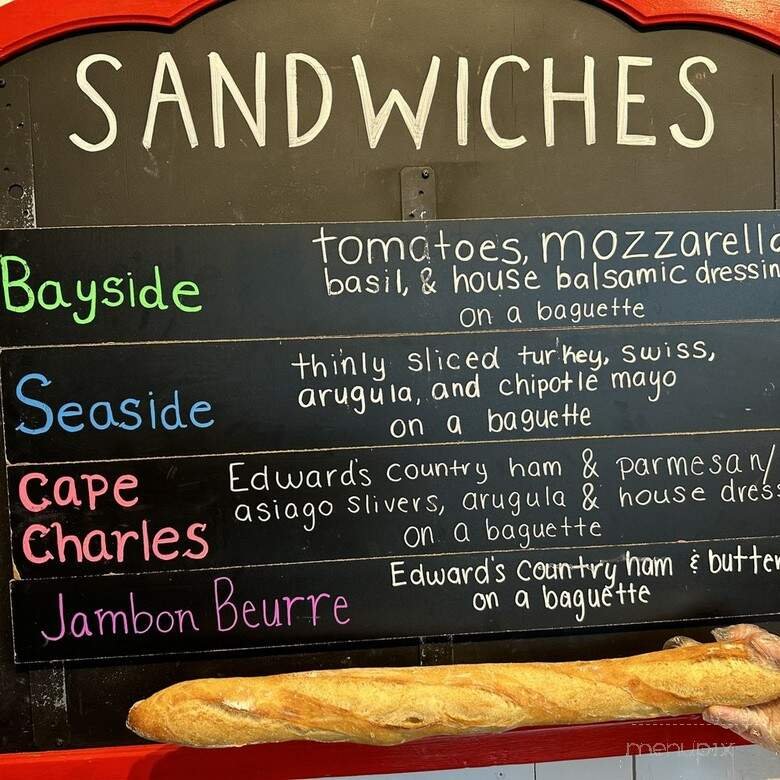 SANDWICHES
Bayside
tomatoes, mozzarella
basil, & house balsamic dressin
on a baguette
Seaside
thinly sliced turkey, swiss,
arugula, and chipotle mayo
on a baguette
Cape
Charles
Edward's country ham & parmesan/
asiago slivers, arugula & house dres
on a baguette
Jambon Beurre
Edward's country ham & butter
on a baguette
menupix